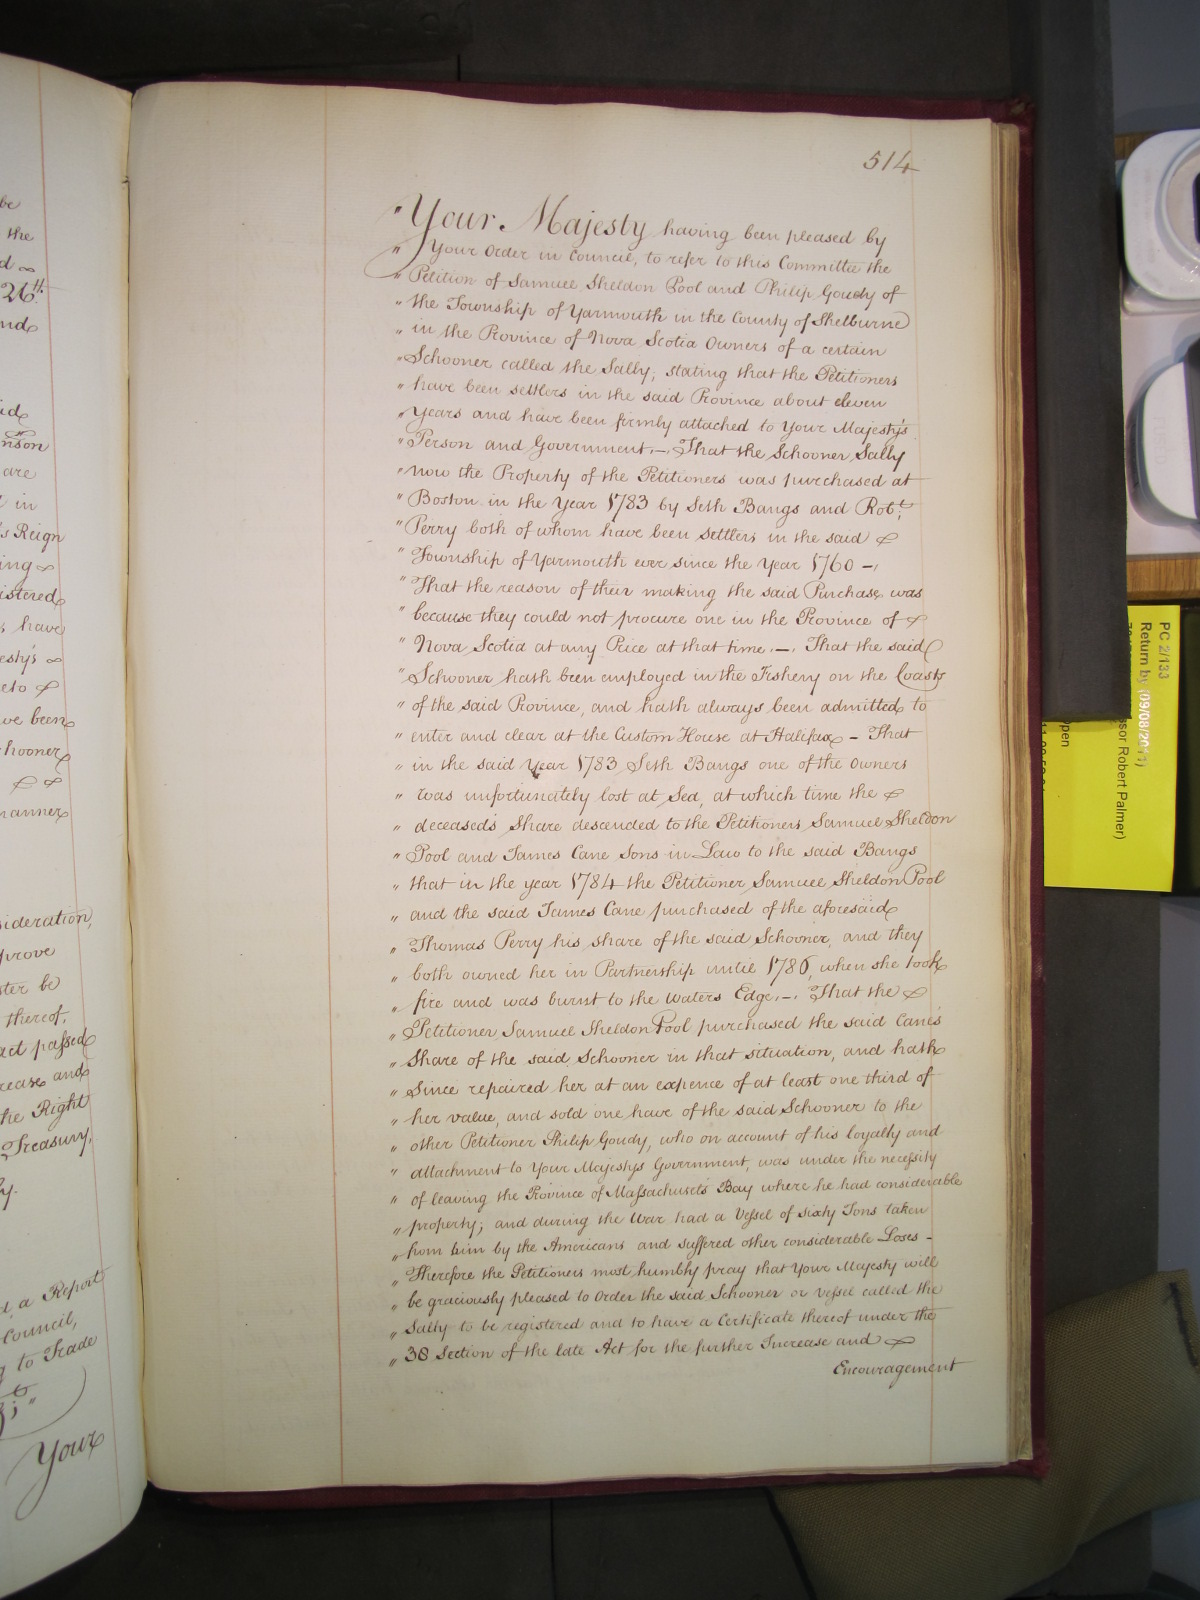 514
"Your Majesty having been pleased by
" Your Order in Council, to refer to this Committee the
" Petition of Samuel Sheldon Pool and Philip Goudy of
" the Township of Yarmouth in the County of Shelburne
" in the Province of Nova Scotia Owners of a certain
" Schooner called the Sally, stating that the Petitioners
" have been settlers in the said Province about eleven
" Years and have been firmly attached to Your Majesty's
" Person and Government, –. That the Schooner Sally
" now the Property of the Petitioners was purchased at
" Boston in the Year 1783 by Seth Bangs and Robt.
" Perry both of whom have been settlers in the said
" Township of Yarmouth ever since the Year 1760 –.
" That the reason of their making the said Purchase was
" because they could not procure one in the Province of
" Nova Scotia at any Price at that time. –. That the said
" Schooner hath been employed in the Fishery on the Coasts
" of the said Province, and hath always been admitted to
" enter and clear at the Custom House at Halifax – That
" in the said Year 1783 Seth Bangs one of the Owners
" was unfortunately lost at Sea, at which time the
" deceased's Share descended to the Petitioners Samuel Sheldon
" Pool and James Cane Sons in Law to the said Bangs
" that in the year 1784 the Petitioner Samuel Sheldon Pool
" and the said James Cane purchased of the aforesaid
" Thomas Perry his share of the said Schooner, and they
" both owned her in Partnership until 1786, when she took
" fire and was burnt to the Waters Edge. –. That the
" Petitioner Samuel Sheldon Pool purchased the said Cane's
" Share of the said Schooner in that situation, and hath
" Since repaired her at an expence of at least one third of
" her value, and sold one have of the said Schooner to the
" other Petitioner Philip Goudy, who on account of his loyalty and
" attachment to Your Majestys Government, was under the necessity
" of leaving the Province of Massachusets Bay where he had considerable
" property; and during the War had a Vessel of sixty Tons taken
" from him by the Americans and suffered other considerable Loses –
" Therefore the Petitioners most humbly pray that Your Majesty will
" be graciously pleased to Order the said Schooner or Vessel called the
" Sally to be registered and to have a Certificate thereof under the
" 38 Section of the late Act for the further Increase and
Encouragement
be
the
26th.
and
nson
are
in
's Reign
ing
istered
have
esty's
eto
ve been
hooner
manner
sideration,
prove
ter be
thereof,
act passed
rease and
he Right
Treasury,
y.
a Report
Council,
to Trade
Your
PC 2/133
Return by (09/08/2011)
ssor Robert Palmer)